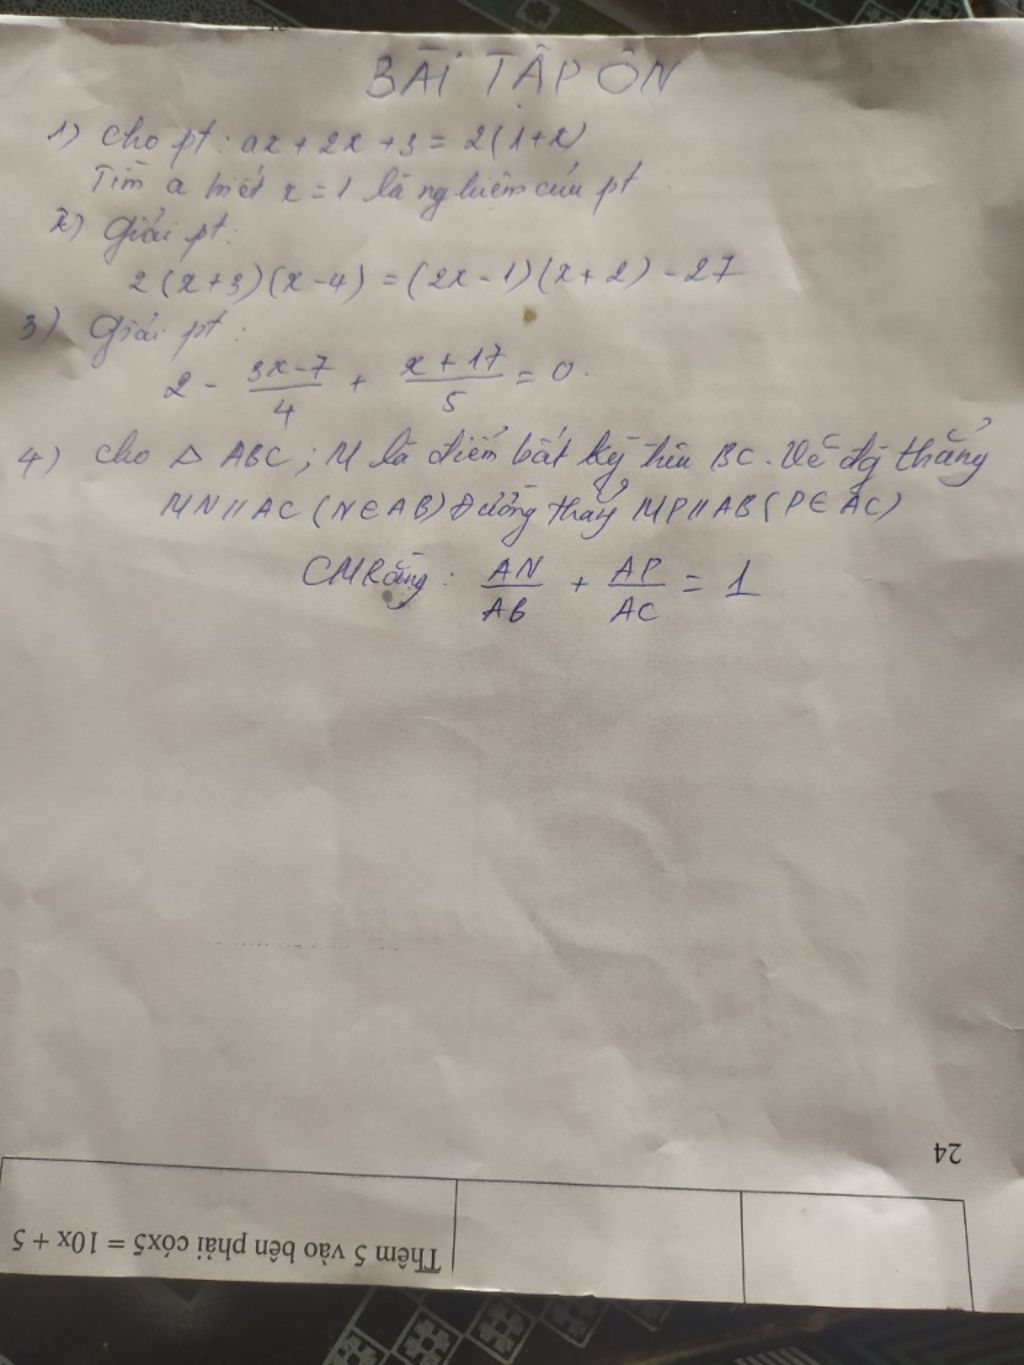 BÀI TẬP ÔN
1) Cho pt: ax + 2x + 3 = 2(1+x)
Tìm a biết x = 1 là nghiệm của pt
2) Giải pt:
2(x+3)(x-4) = (2x-1)(x+2) - 27
3) Giải pt:
2 - \frac{3x-7}{4} + \frac{x+17}{5} = 0.
4) Cho △ ABC; M là điểm bất kỳ trên BC. Vẽ đg thẳng
MN//AC (N∈AB) Đường thẳng MP//AB (P∈AC)
CMRằng: \frac{AN}{AB} + \frac{AP}{AC} = 1
24
Thêm 5 vào bên phải cóx5 = 10x + 5